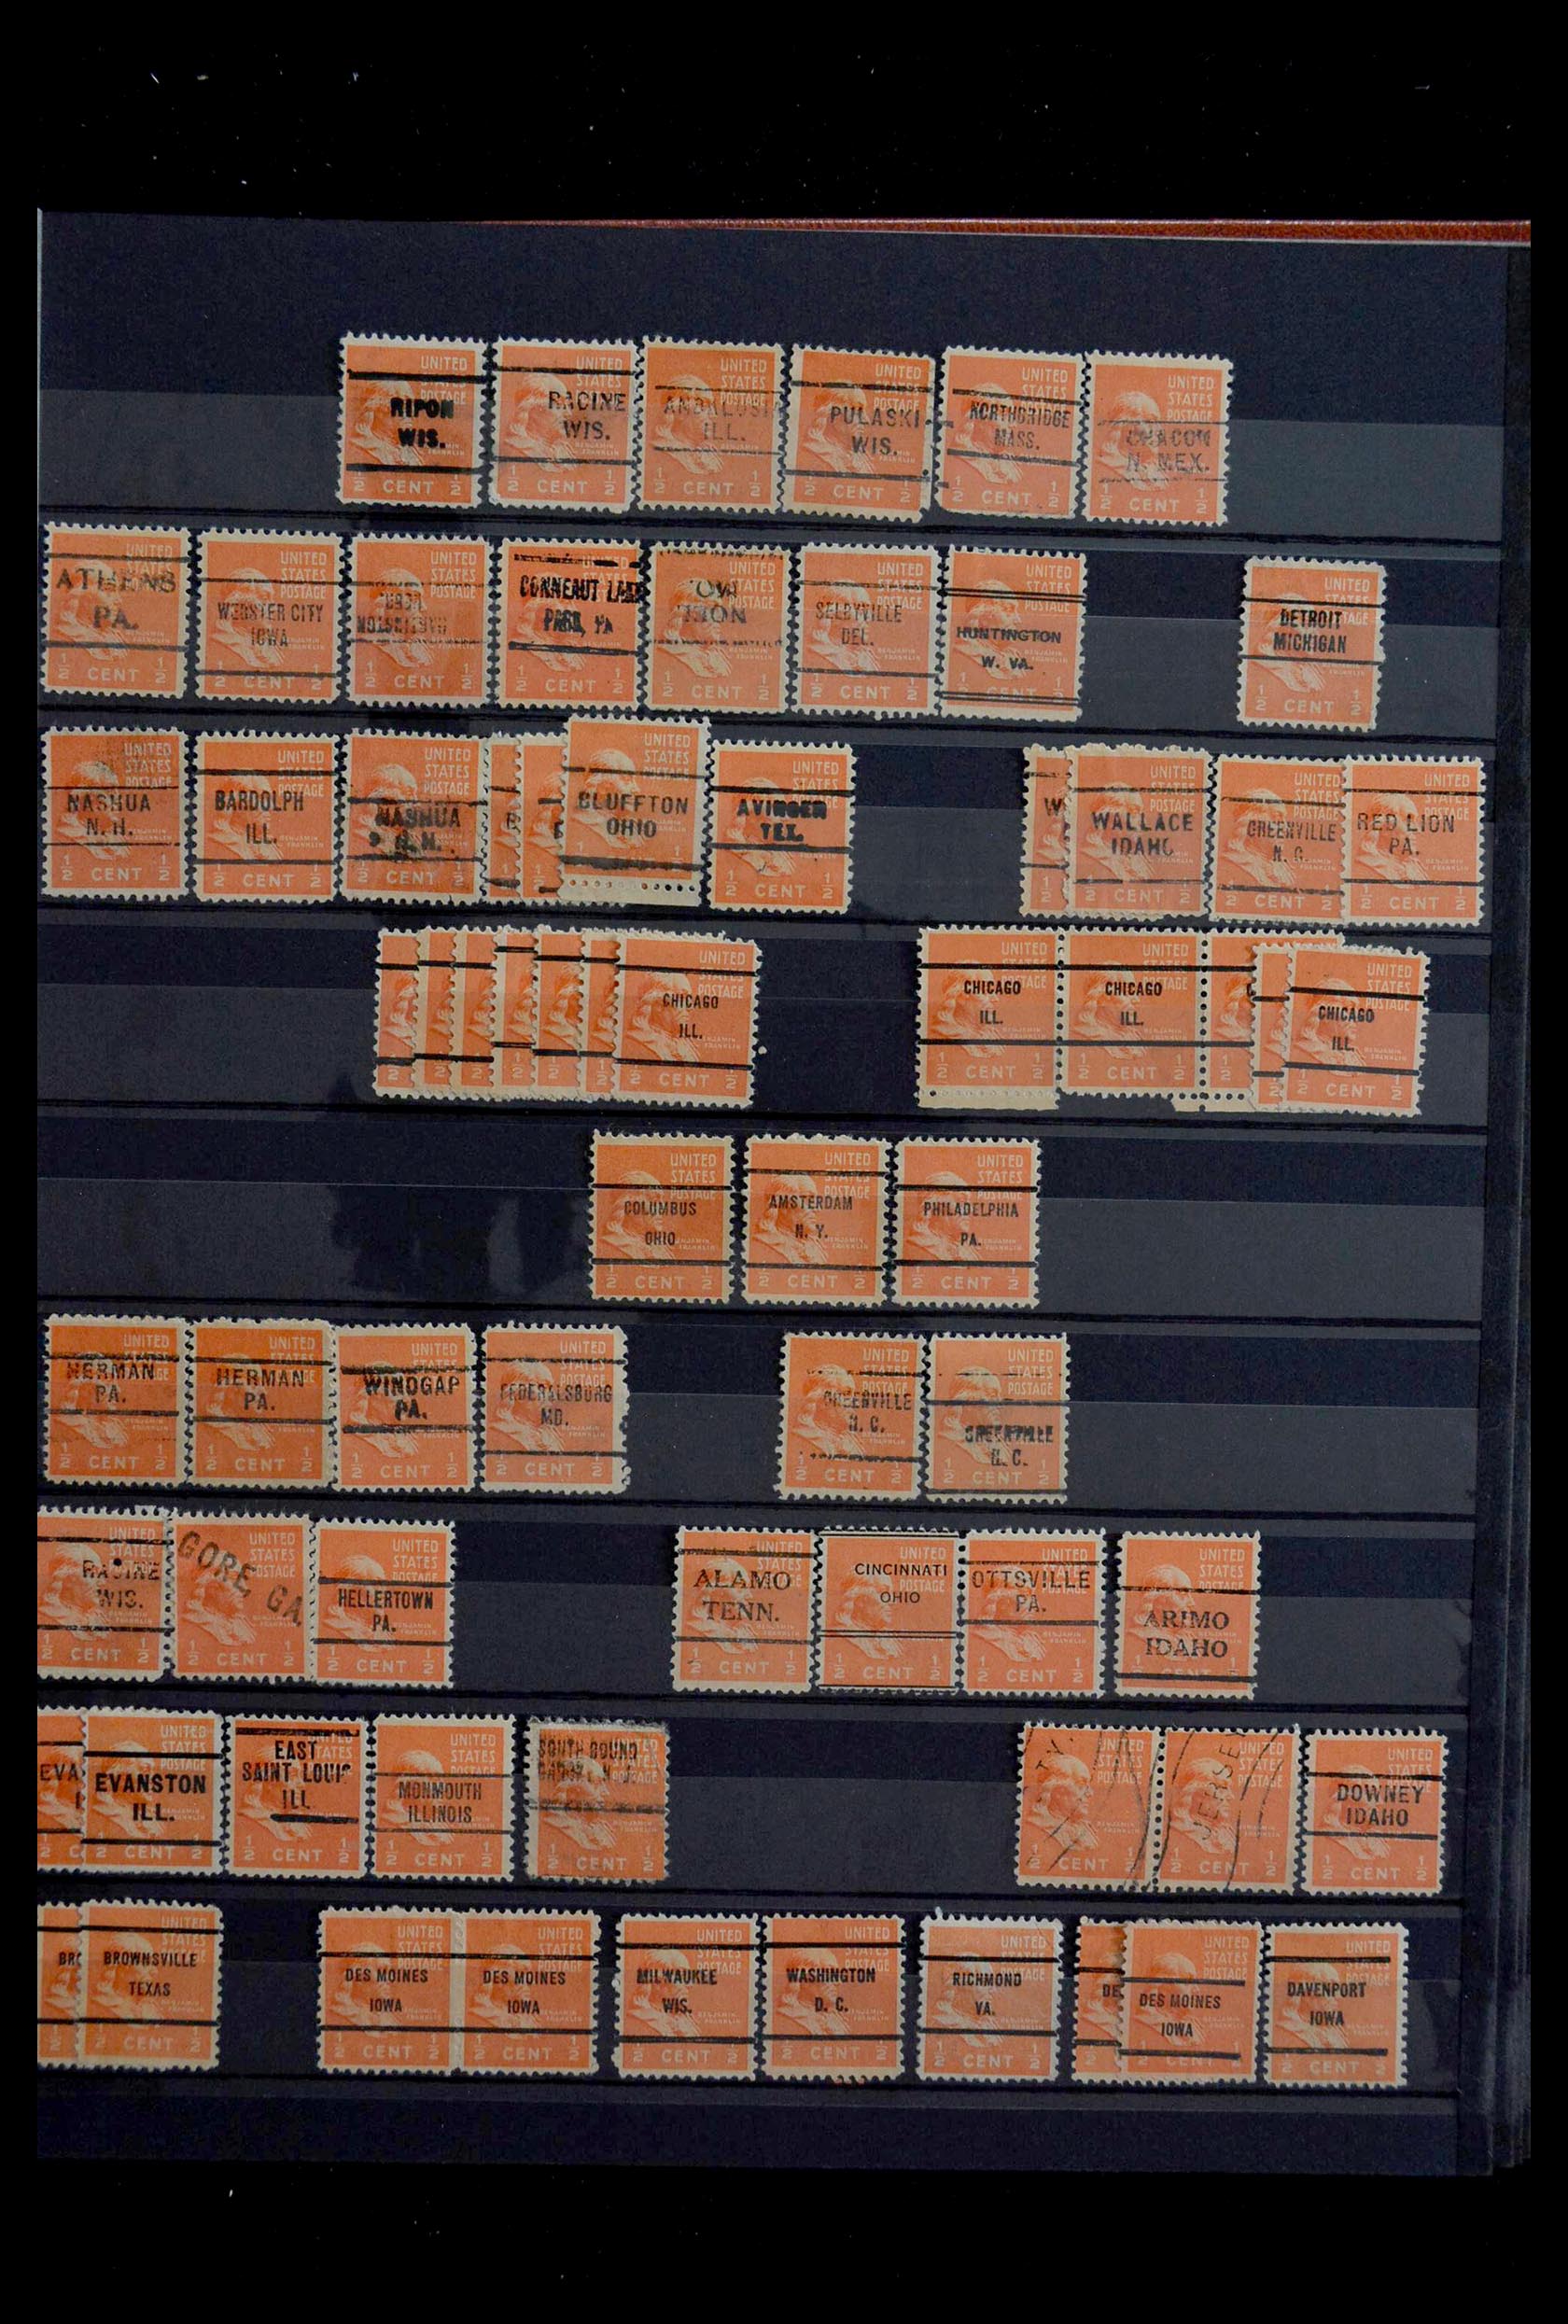 UNITED
STATES
POSTAGE
RIPON
WIS.
BENJAMIN
FRANKLIN
1/2 CENT 1/2
UNITED
STATES
POSTAGE
RACINE
WIS.
1/2 CENT 1/2
UNITED
STATES
POSTAGE
ANDALUSIA
ILL.
1/2 CENT 1/2
UNITED
STATES
POSTAGE
PULASKI
WIS.
1/2 CENT 1/2
UNITED
STATES
POSTAGE
NORTHBRIDGE
MASS.
1/2 CENT 1/2
UNITED
STATES
POSTAGE
CHACON
N. MEX.
1/2 CENT 1/2
UNITED
STATES
ATHENS
PA.
1/2 CENT 1/2
UNITED
STATES
POSTAGE
WEBSTER CITY
IOWA
1/2 CENT 1/2
UNITED
STATES
POSTAGE
1/2 CENT 1/2
CONNEAUT LAKE
PARK, PA
1/2 CENT 1/2
UNITED
STATES
POSTAGE
1/2 CENT 1/2
UNITED
STATES
POSTAGE
SELBYVILLE
DEL.
1/2 CENT 1/2
UNITED
STATES
POSTAGE
HUNTINGTON
W. VA.
CENT
UNITED
STATES
POSTAGE
DETROIT
MICHIGAN
1/2 CENT 1/2
UNITED
STATES
POSTAGE
NASHUA
N. H.
1/2 CENT 1/2
UNITED
STATES
POSTAGE
BARDOLPH
ILL.
1/2 CENT 1/2
UNITED
STATES
POSTAGE
NASHUA
N. H.
1/2 CENT 1/2
UNITED
STATES
POSTAGE
BLUFFTON
OHIO
UNITED
STATES
POSTAGE
AVINGER
TEX.
1/2 CENT 1/2
W
UNITED
STATES
POSTAGE
WALLACE
IDAHO
1/2 CENT 1/2
UNITED
STATES
POSTAGE
GREENVILLE
N. C.
1/2 CENT
UNITED
STATES
POSTAGE
RED LION
PA.
1/2 CENT 1/2
UNITED
STATES
POSTAGE
CHICAGO
ILL.
1/2 CENT 1/2
UNITED
STATES
POSTAGE
CHICAGO
ILL.
1/2 CENT 1/2
UNITED
STATES
POSTAGE
CHICAGO
ILL.
1/2 CENT 1/2
UNITED
STATES
POSTAGE
CHICAGO
ILL.
1/2 CENT 1/2
UNITED
STATES
POSTAGE
COLUMBUS
OHIO
1/2 CENT 1/2
UNITED
STATES
POSTAGE
AMSTERDAM
N. Y.
1/2 CENT 1/2
UNITED
STATES
POSTAGE
PHILADELPHIA
PA.
1/2 CENT 1/2
UNITED
STATES
HERMAN
PA.
1/2 CENT 1/2
UNITED
STATES
HERMAN
PA.
1/2 CENT 1/2
UNITED
STATES
WINDGAP
PA.
1/2 CENT 1/2
UNITED
STATES
POSTAGE
FEDERALSBURG
MD.
1/2 CENT 1/2
UNITED
STATES
POSTAGE
GREENVILLE
N. C.
1/2 CENT 1/2
UNITED
STATES
POSTAGE
GREENVILLE
N. C.
1/2 CENT 1/2
UNITED
STATES
POSTAGE
RACINE
WIS.
CENT 1/2
UNITED
STATES
POSTAGE
GORE, GA.
1/2 CENT
UNITED
STATES
POSTAGE
HELLERTOWN
PA.
1/2 CENT 1/2
UNITED
STATES
POSTAGE
ALAMO
TENN.
1/2 CENT 1/2
UNITED
STATES
POSTAGE
CINCINNATI
OHIO
1/2 CENT 1/2
UNITED
STATES
OTTSVILLE
PA.
1/2 CENT 1/2
UNITED
STATES
POSTAGE
ARIMO
IDAHO
EVA
UNITED
STATES
POSTAGE
EVANSTON
ILL.
1/2 CENT 1/2
UNITED
STATES
POSTAGE
EAST
SAINT LOUIS
ILL
1/2 CENT 1/2
UNITED
STATES
POSTAGE
MONMOUTH
ILLINOIS
1/2 CENT 1/2
SOUTH BOUND
1/2 CENT 1/2
TY.
UNITED
STATES
POSTAGE
1/2 CENT 1/2
UNITED
STATES
POSTAGE
JERSE
1/2 CENT 1/2
UNITED
STATES
POSTAGE
DOWNEY
IDAHO
1/2 CENT 1/2
BRO
UNITED
STATES
POSTAGE
BROWNSVILLE
TEXAS
1/2 CENT 1/2
UNITED
STATES
POSTAGE
DES MOINES
IOWA
1/2 CENT 1/2
UNITED
STATES
POSTAGE
DES MOINES
IOWA
1/2 CENT 1/2
UNITED
STATES
POSTAGE
MILWAUKEE
WIS.
1/2 CENT 1/2
UNITED
STATES
POSTAGE
WASHINGTON
D. C.
1/2 CENT 1/2
UNITED
STATES
POSTAGE
RICHMOND
VA.
1/2 CENT 1/2
DE
UNITED
STATES
POSTAGE
DES MOINES
IOWA
1/2 CENT 1/2
UNITED
STATES
POSTAGE
DAVENPORT
IOWA
1/2 CENT 1/2